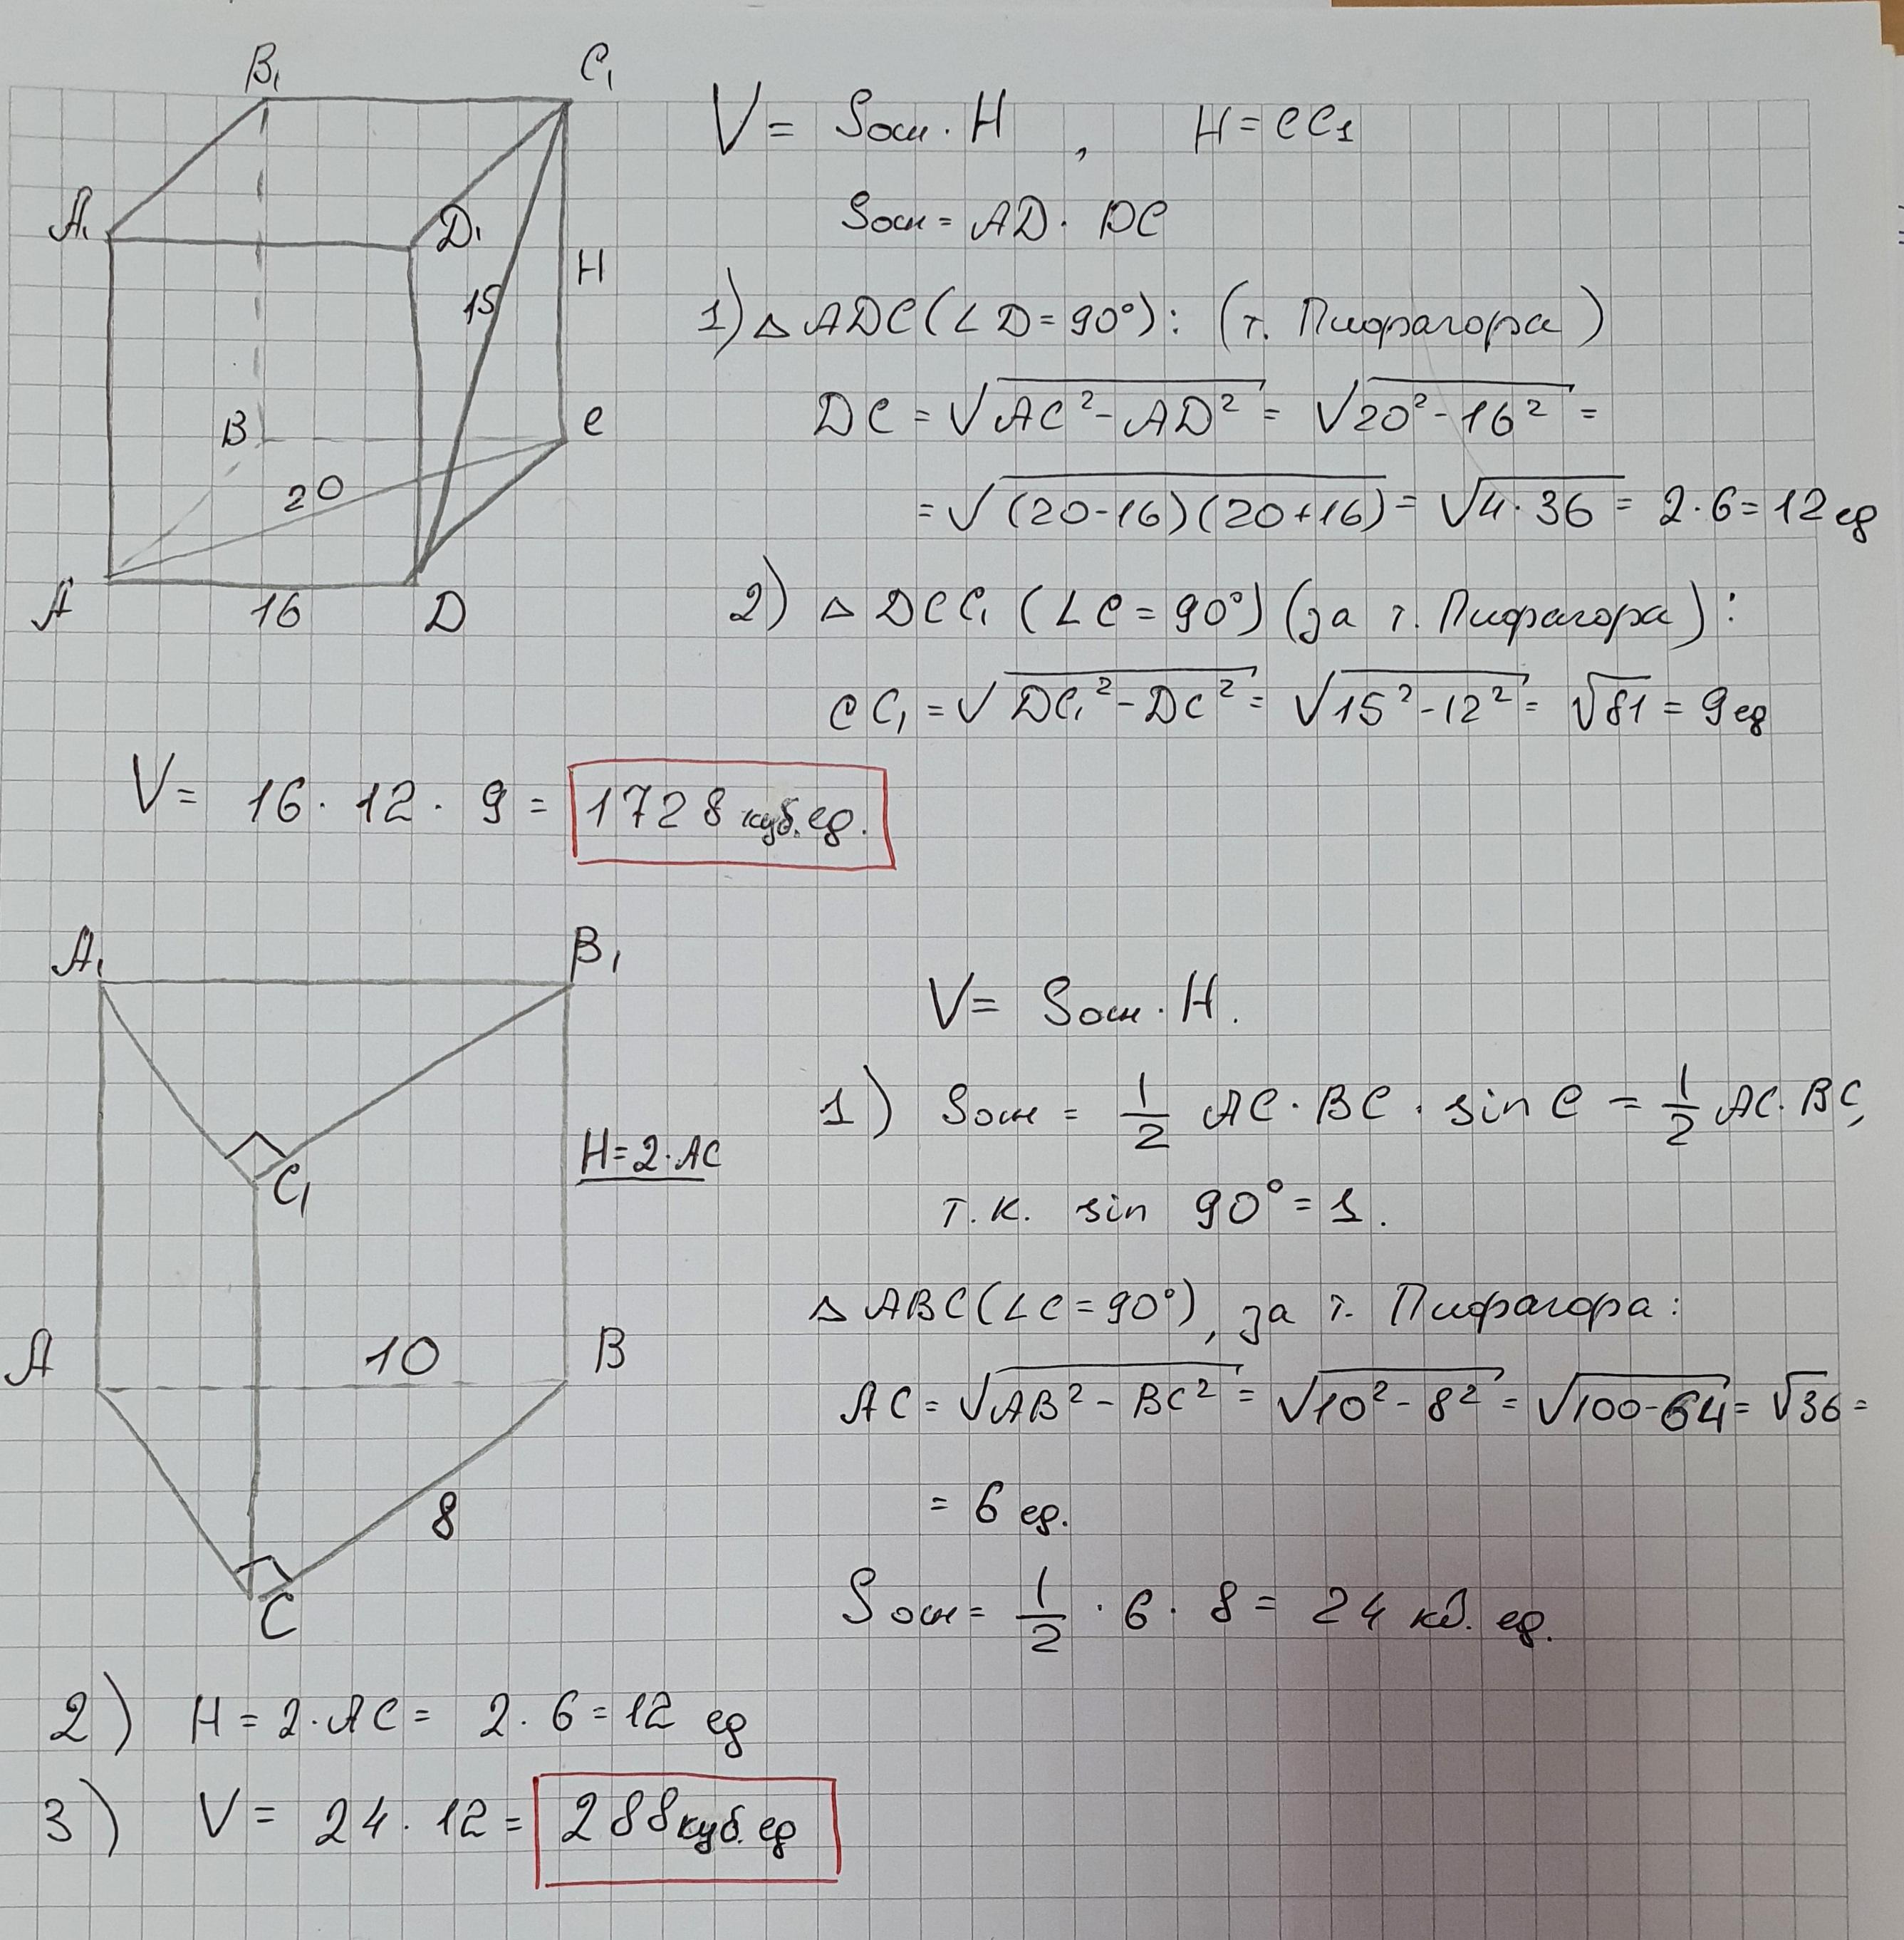 B₁ C₁
A₁ D₁
15 H
B C
20
A 16 D
V = Sосн · H , H = CC₁
Sосн = AD · DC
1) △ ADC (∠D = 90°): (т. Пифагора)
DC = √(AC² - AD²) = √(20² - 16²) =
= √((20-16)(20+16)) = √(4·36) = 2·6 = 12 ед
2) △ DCC₁ (∠C = 90°) (за т. Пифагора):
CC₁ = √(DC₁² - DC²) = √(15² - 12²) = √81 = 9 ед
V = 16 · 12 · 9 = 1728 куб. ед.
A₁ B₁
C₁
H = 2·AC
A 10 B
8
C
V = Sосн · H.
1) Sосн = 1/2 AC · BC · sin C = 1/2 AC · BC,
т.к. sin 90° = 1.
△ ABC (∠C = 90°), за т. Пифагора:
AC = √(AB² - BC²) = √(10² - 8²) = √(100-64) = √36 =
= 6 ед.
Sосн = 1/2 · 6 · 8 = 24 кв. ед.
2) H = 2·AC = 2 · 6 = 12 ед
3) V = 24 · 12 = 288 куб. ед